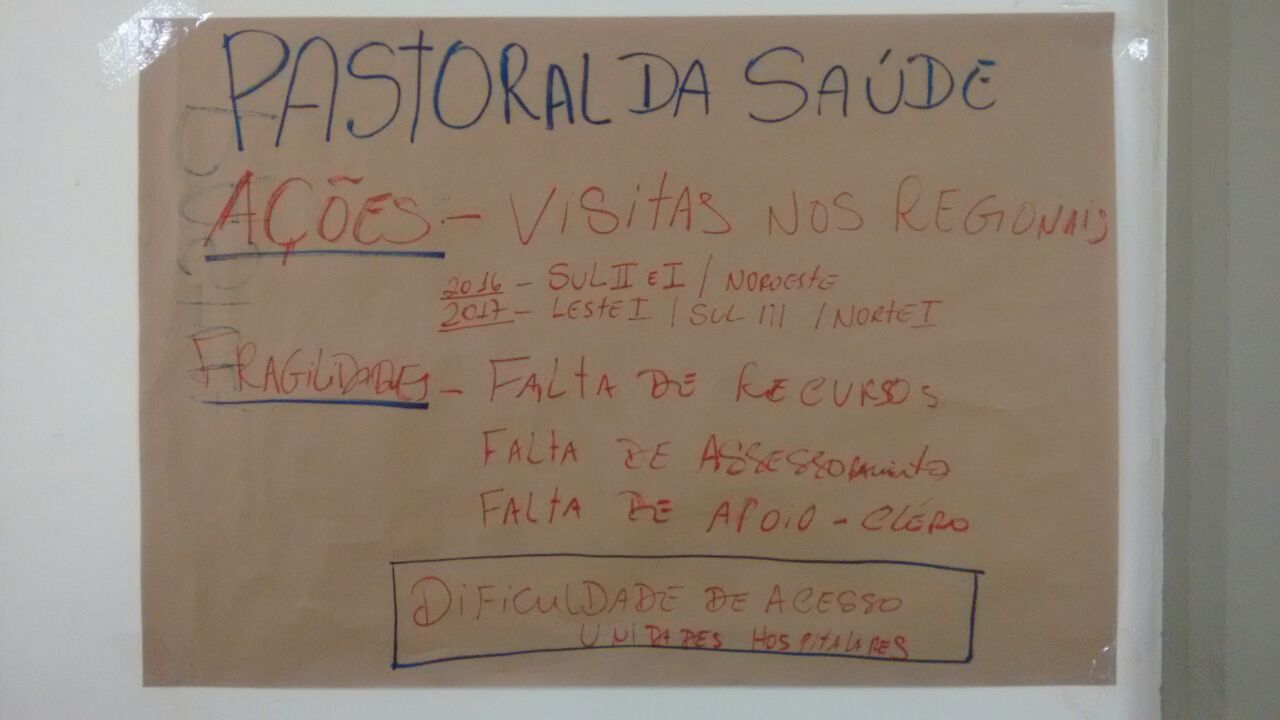 PASTORAL DA SAÚDE
AÇÕES - VISITAS NOS REGIONAIS
2016 - SUL II E I / NOROESTE
2017 - LESTE I / SUL III / NORTE I
FRAGILIDADES - FALTA DE RECURSOS
FALTA DE ASSESSORAMENTO
FALTA DE APOIO - CLÉRO
DIFICULDADE DE ACESSO
UNIDADES HOSPITALARES